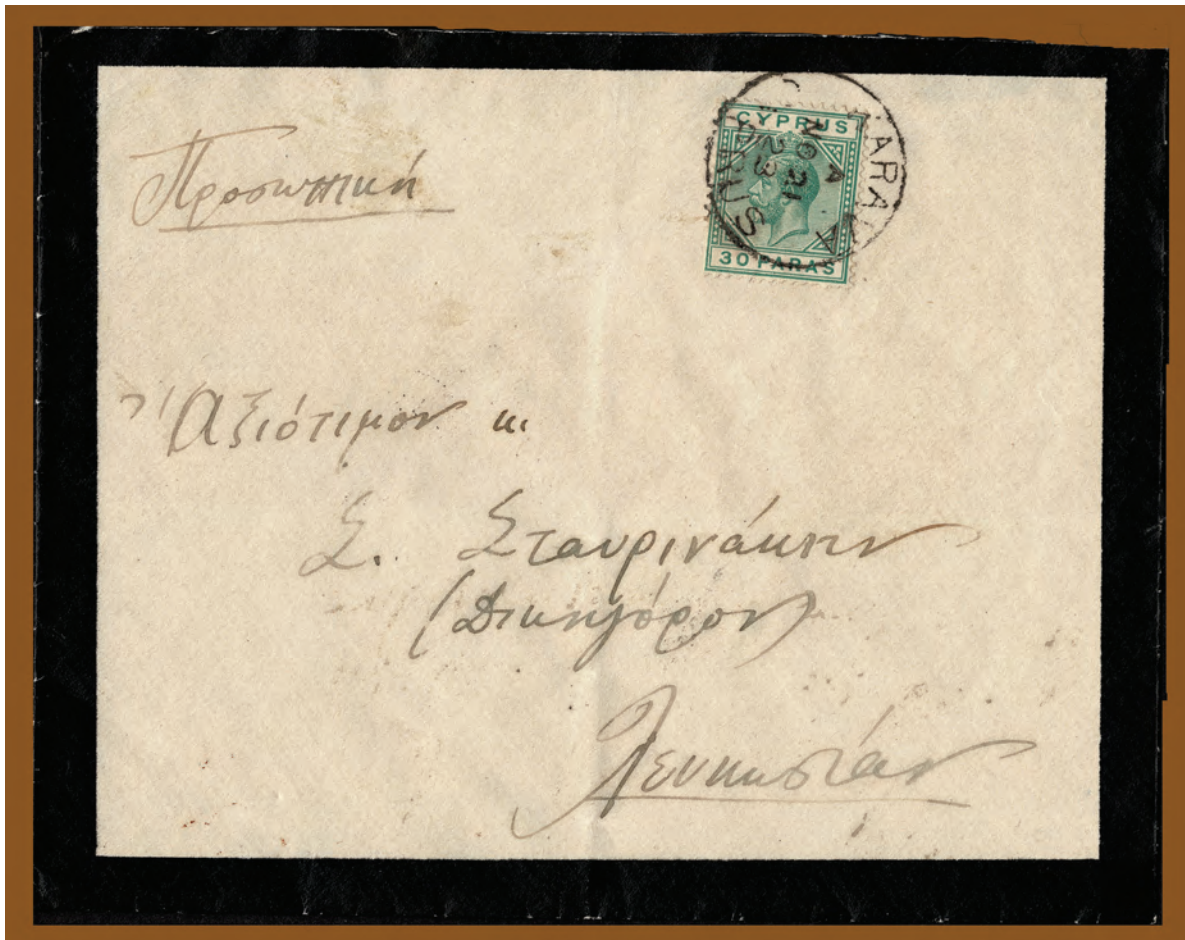 Προσωπική
CYPRUS
30 PARAS
KARAVA
A
NO 21
23
CYPRUS
Ἀξιότιμον κ.
Σ. Σταυρινάκην
(Δικηγόρον)
Λευκωσίαν